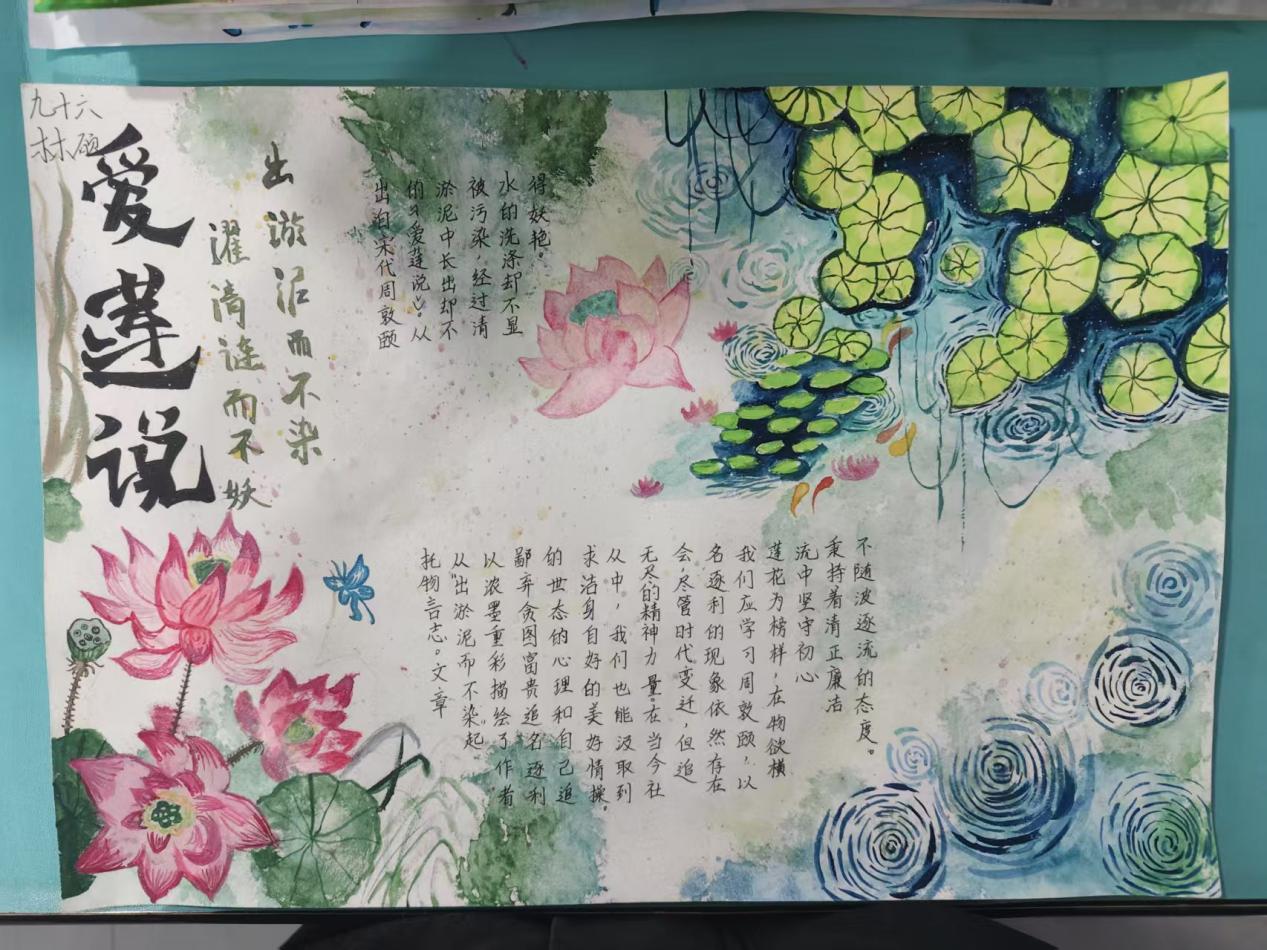 九十六
林硕
爱莲说
出淤泥而不染
濯清涟而不妖
出自宋代周敦颐
的《爱莲说》。从
淤泥中长出却不
被污染，经过清
水的洗涤却不显
得妖艳。
托物言志。文章
从“出淤泥而不染”起
以浓墨重彩描绘了作者
鄙弃贪图富贵追名逐利
的世态的心理和自己追
求洁身自好的美好情操。
从中，我们也能汲取到
无尽的精神力量。在当今社
会，尽管时代变迁，但追
名逐利的现象依然存在
我们应学习周敦颐，以
莲花为榜样，在物欲横
流中坚守初心
秉持着清正廉洁
不随波逐流的态度。